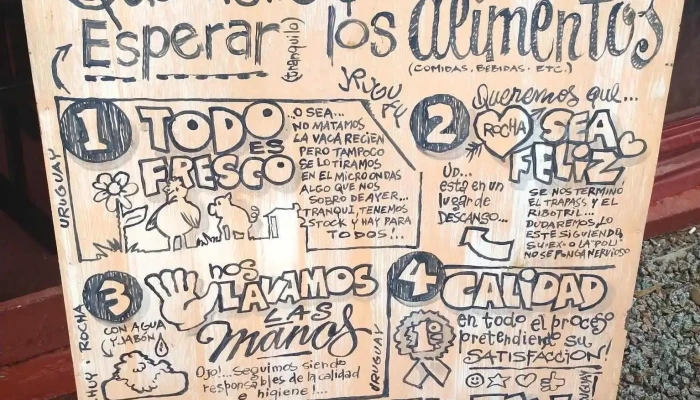 Esperar
(tranquilo)
los alimentos
(COMIDAS, BEBIDAS, ETC.)
URUGUAY
1
TODO
ES
FRESCO
..O SEA...
NO MATAMOS
LA VACA RECIEN
PERO TAMPOCO
SE LO TIRAMOS
EN EL MICROONDAS
ALGO QUE NOS
SOBRO DE AYER...
TRANQUI, TENEMOS
STOCK Y HAY PARA
TODOS!...
2
Queremos que...
ROCHA
SEA
FELIZ
UD...
esta en un
lugar de
DESCANSO...
SE NOS TERMINO
EL TRAPASS Y EL
RIBOTRIL...
DUDAREMOS, LO
ESTE SIGUIENDO,
SU EX- O LA "POLI"
NO SE PONGA NERVIOSO
3
nos
LAVAMOS
LAS
manos
CON AGUA
(Y JABÓN)
ROCHA
Ojo!... Seguimos siendo
responsables de la calidad
e higiene!...
URUGUAY
4
CALIDAD
1º
en todo el proceso
pretendiendo su
SATISFACCION!